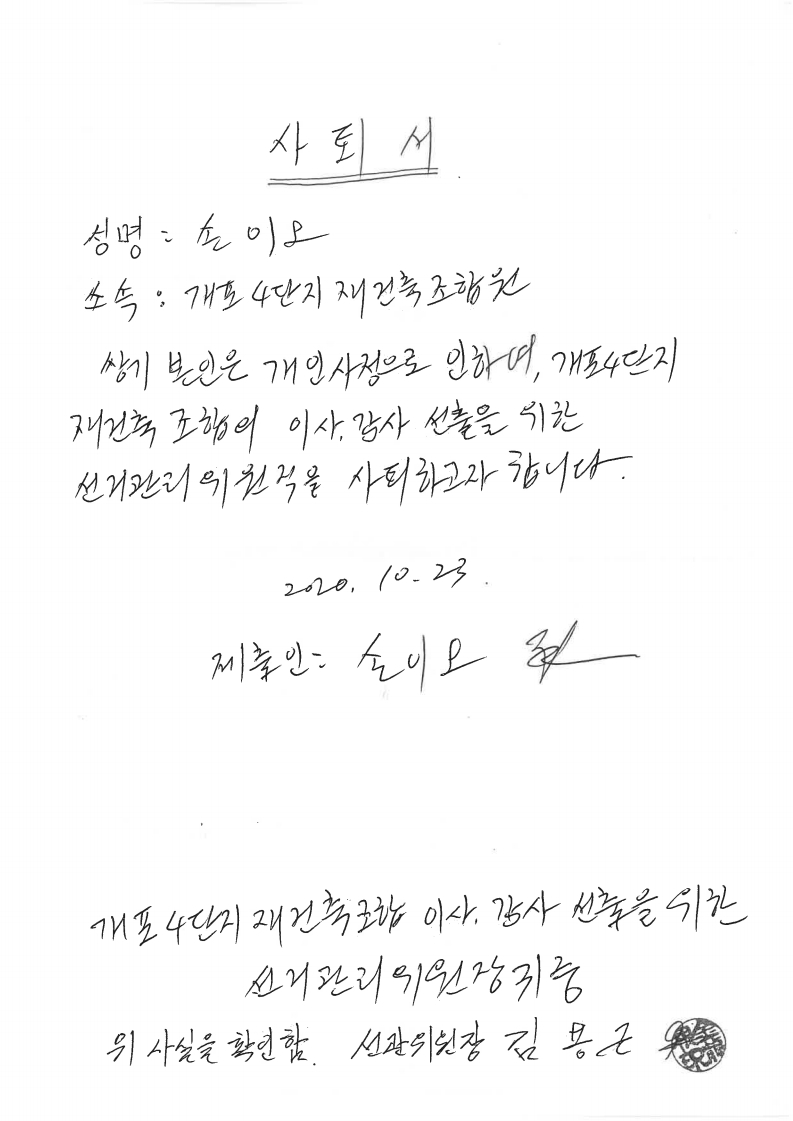 사 퇴 서
성명 : 손 이 오
소속 : 개포 4단지 재건축조합원
상기 본인은 개인사정으로 인하여, 개포4단지
재건축 조합의 이사, 감사 선출을 위한
선거관리위원직을 사퇴하고자 합니다.
2020. 10. 23.
제출인 : 손 이 오
개포 4단지 재건축조합 이사, 감사 선출을 위한
선거관리위원장 귀중
위 사실을 확인함. 선관위원장 김 용 근